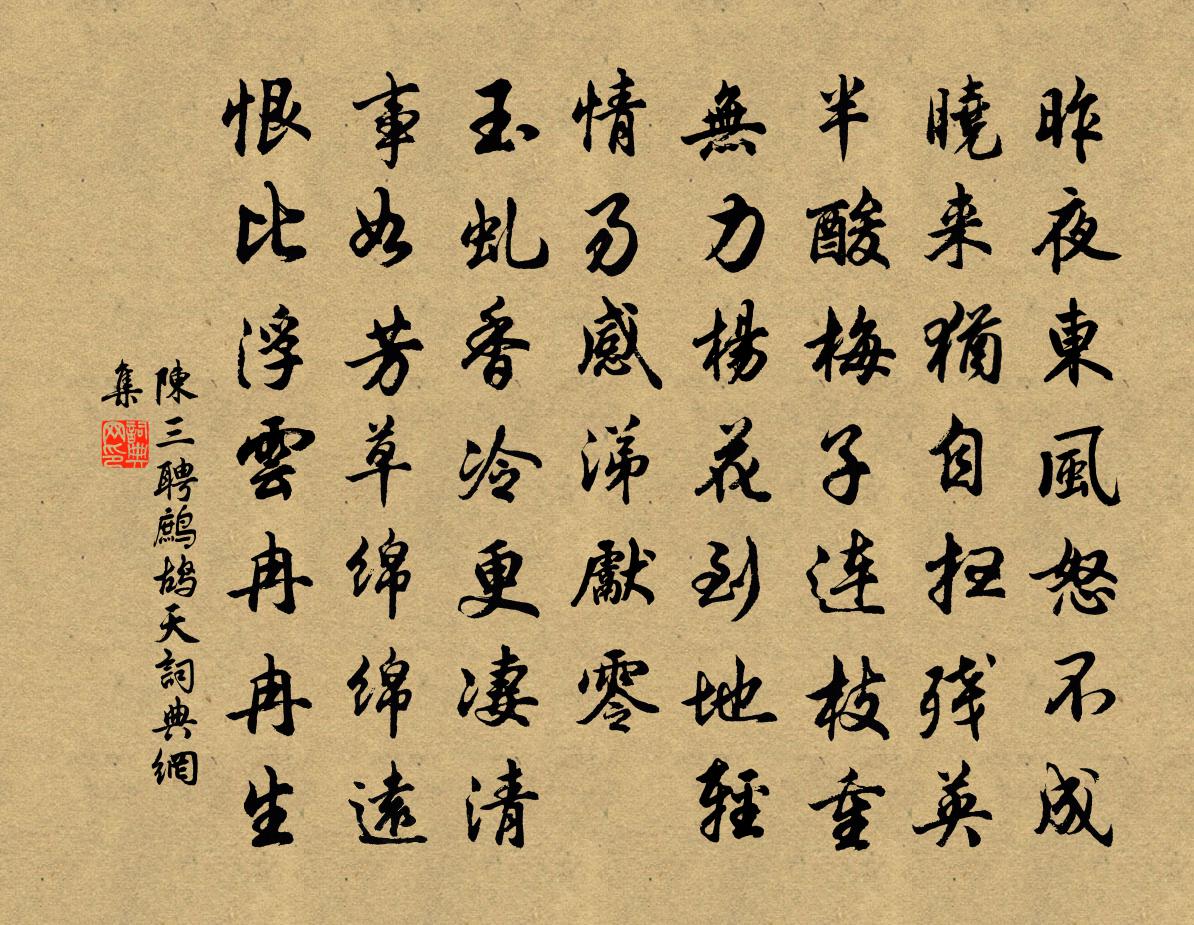 昨夜東風怒不成
曉来猶自扫残英
半酸梅子連枝重
無力楊花到地輕
情易感涕獻零
玉虬香冷更淒清
事如芳草綿綿遠
恨比浮雲冉冉生
陳三聘鷓鴣天詞典網
集
詞典
网印